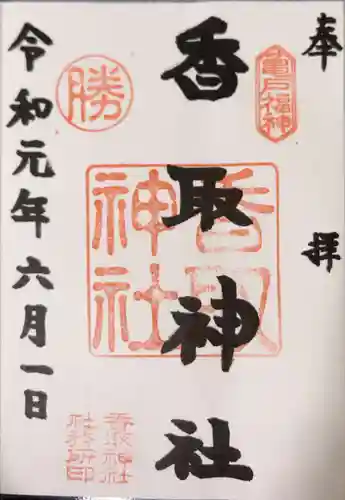 奉拝
亀戸福神
香取神社
香取神社
勝
令和元年六月一日
香取神社
社務所印